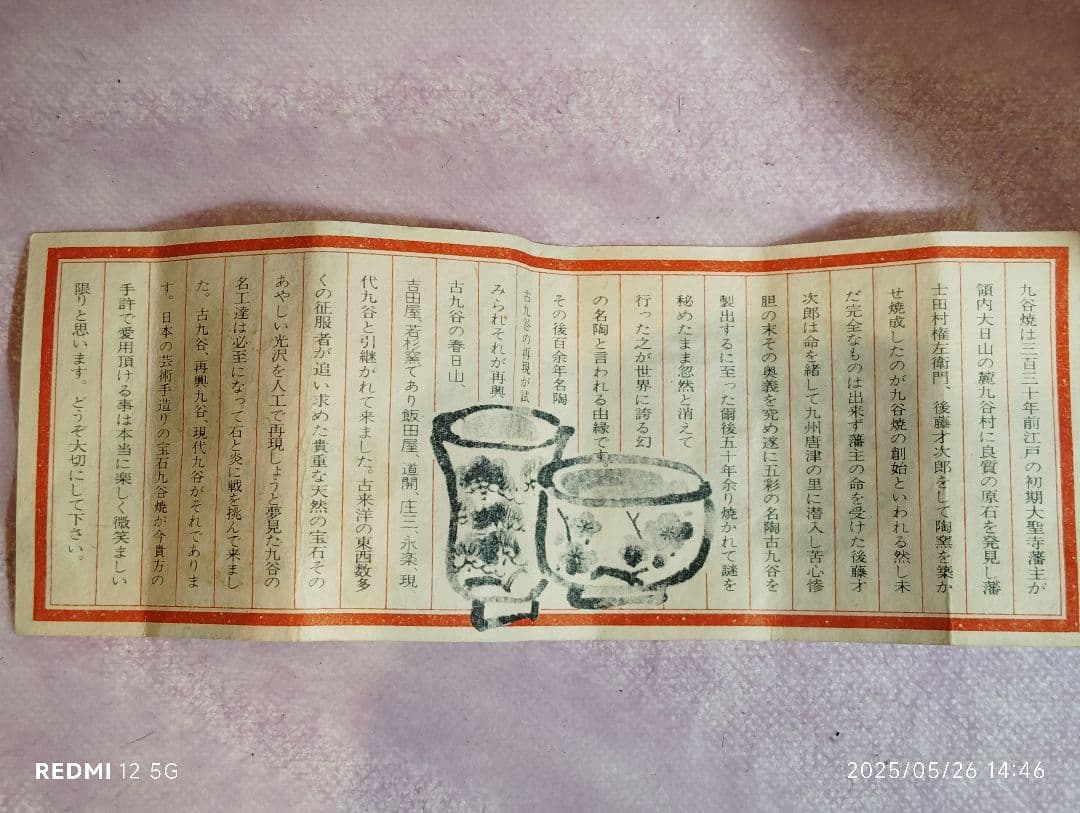 九谷焼は三百三十年前江戸の初期大聖寺藩主が
領内大日山の麓九谷村に良質の原石を発見し藩
士田村権左衛門、後藤才次郎をして陶窯を築か
せ焼成したのが九谷焼の創始といわれる然し未
だ完全なものは出来ず藩主の命を受けた後藤才
次郎は命を緒して九州唐津の里に潜入し苦心惨
胆の末その奥義を究め遂に五彩の名陶古九谷を
製出するに至った爾後五十年余り焼かれて謎を
秘めたまま忽然と消えて
行った之が世界に誇る幻
の名陶と言われる由縁です。
その後百余年名陶
古九谷の再現が試
みられそれが再興
古九谷の春日山、
吉田屋、若杉窯であり飯田屋、道開、庄三、永楽、現
代九谷と引継がれて来ました。古来洋の東西数多
くの征服者が追い求めた貴重な天然の宝石その
あやしい光沢を人工で再現しょうと夢見た九谷の
名工達は必至になって石と炎に戦を挑んで来まし
た。古九谷、再興九谷、現代九谷がそれでありま
す。日本の芸術手造りの宝石九谷焼が今貴方の
手許で愛用頂ける事は本当に楽しく微笑ましい
限りと思います。どうぞ大切にして下さい。
REDMI 12 5G
2025/05/26 14:46